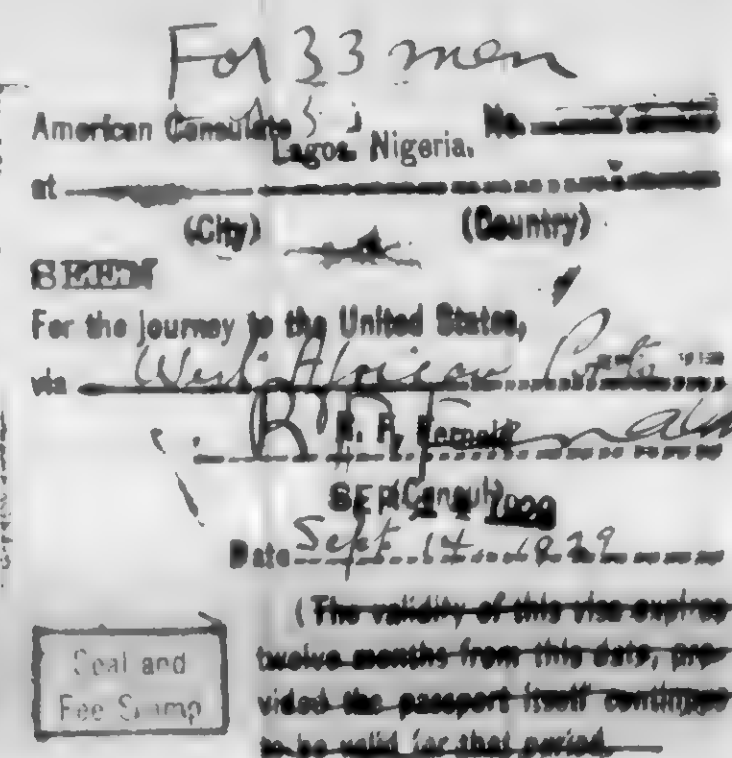 For 33 men
American Consulate No.
Lagos, Nigeria.
at
(City) (Country)
SEEN
For the journey to the United States,
via West African Ports
(Consul)
SEP
Date Sept 14 1929
(The validity of this visa expires
twelve months from this date, pro-
vided the passport itself continues
to be valid for that period.
Seal and
Fee Stamp